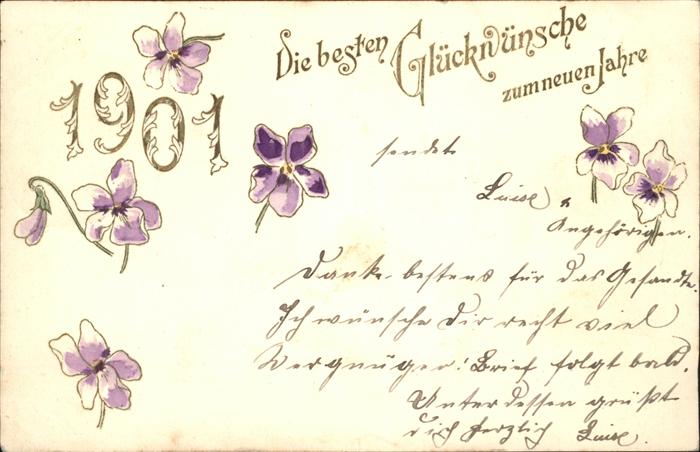 Die besten Glückwünsche
zum neuen Jahre
1901
sendet
Luise u.
Angehörigen.
Danke bestens für das Gesandte.
Ich wünsche Dir recht viel
Vergnügen! Brief folgt bald.
Unterdessen grüßt
dich herzlich Luise.